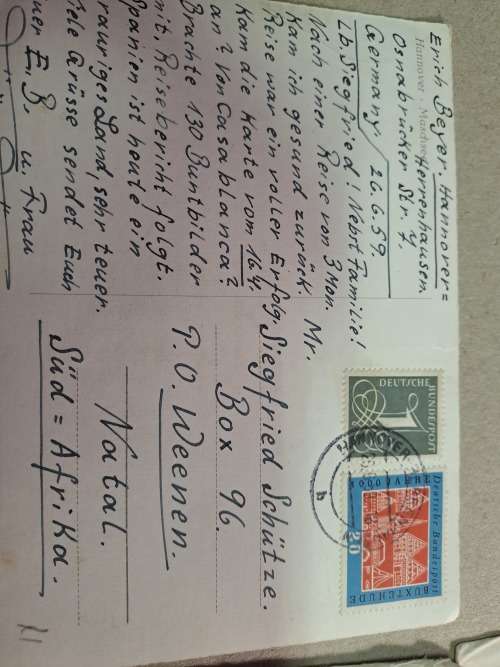 Erich Beyer. Hannover=
Hannover
Herrenhausen.
Osnabrücker Str. 7.
Germany / 26.6.59.
Lb. Siegfried! Nebst Familie!
Nach einer Reise von 3 Mon.
Kam ich gesund zurück.
Reise war ein voller Erfolg.
Kam die Karte vom 16.4.
an? Von Casablanca?
Brachte 130 Buntbilder
mit. Reisebericht folgt.
Spanien ist heute ein
rauriges Land, sehr teuer.
iele Grüsse sendet Euch
uer E. B. u. Frau
DEUTSCHE BUNDESPOST
1
Deutsche Bundespost
20
BUXTEHUDE
HANNOVER
h
Mr.
Siegfried Schütze.
Box 96.
P.O. Weenen.
Natal.
Süd=Afrika.